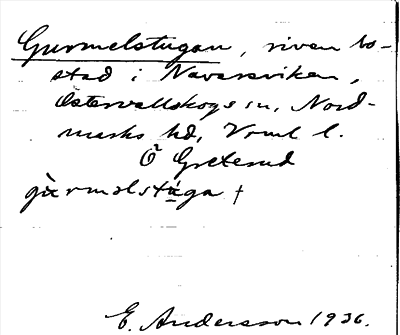 Gurmelstugan, riven bo-
stad i Navarsviken,
Östervallskogs sn, Nord-
marks hd, Vrml l.
Ö Greterud
gùrmolstúga †
E. Andersson 1936.